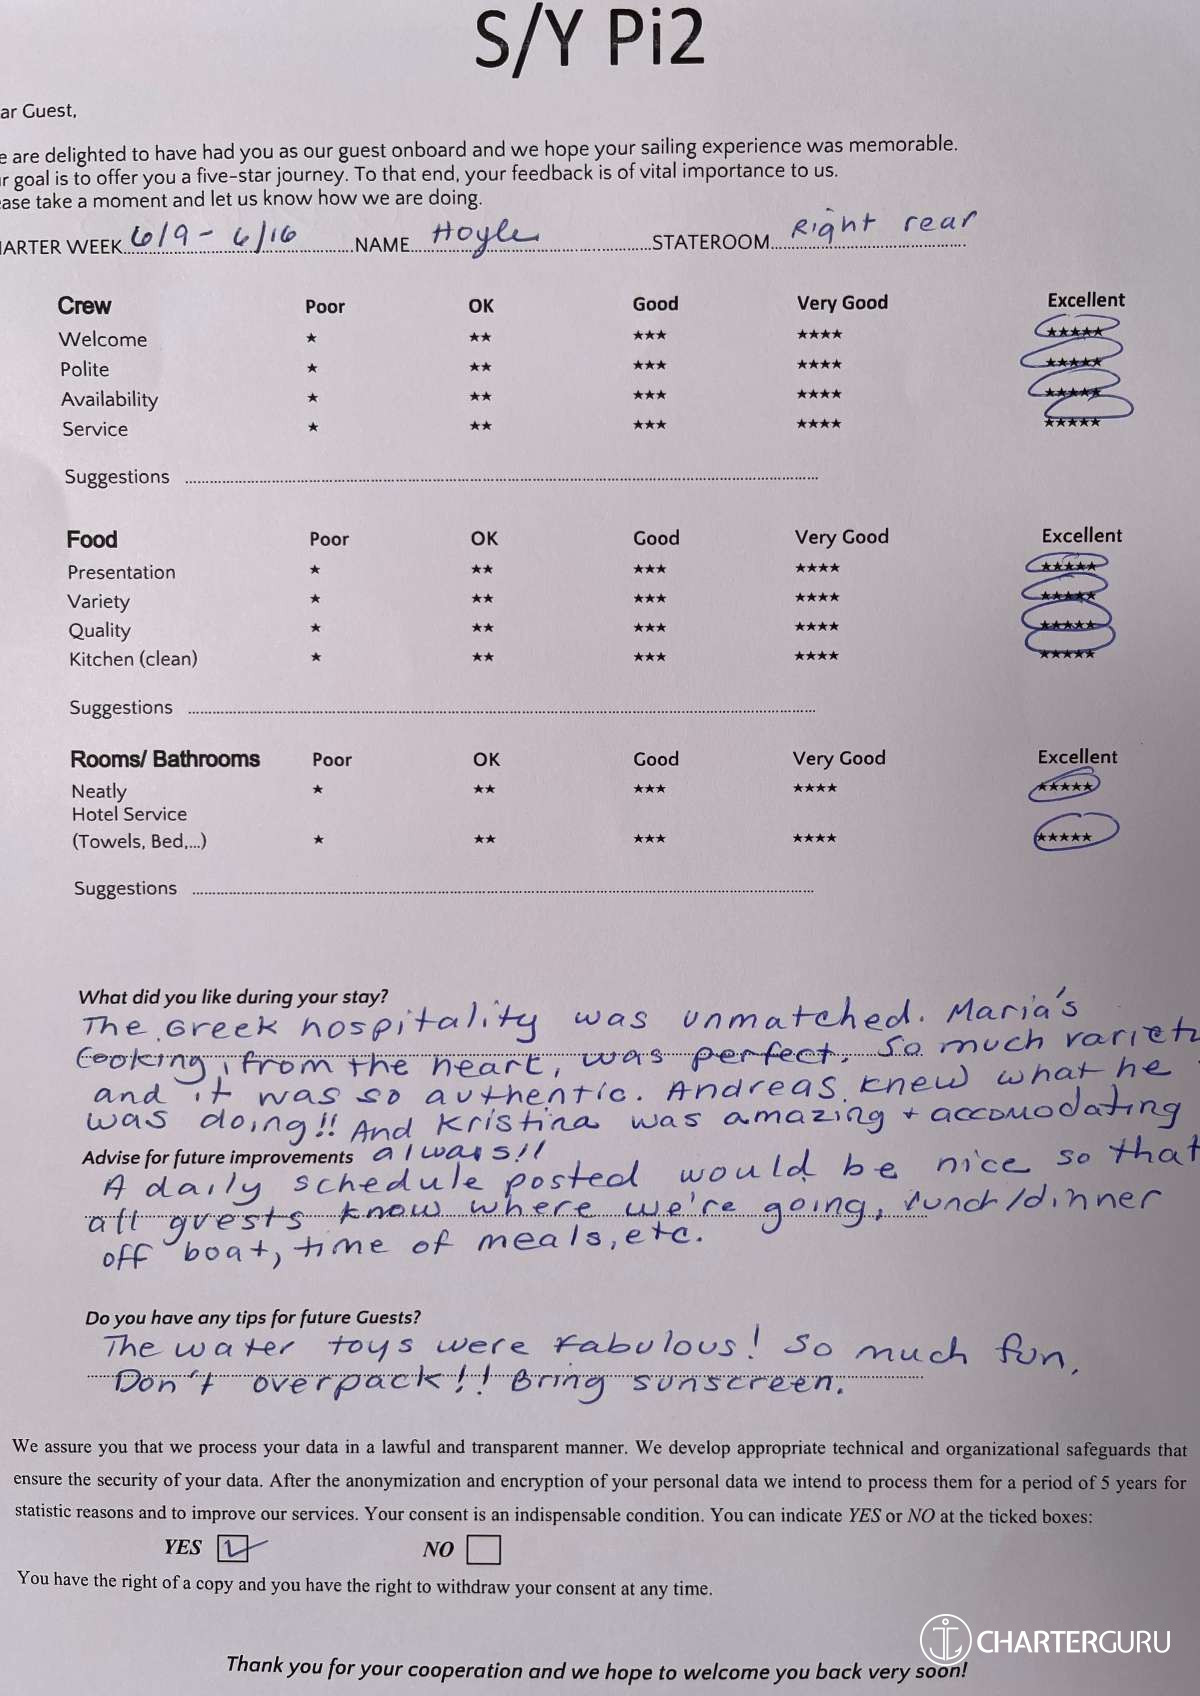 S/Y Pi2
ar Guest,
e are delighted to have had you as our guest onboard and we hope your sailing experience was memorable.
r goal is to offer you a five-star journey. To that end, your feedback is of vital importance to us.
ase take a moment and let us know how we are doing.
HARTER WEEK 6/9 - 6/16 NAME Hoyle STATEROOM Right rear
Crew Poor OK Good Very Good Excellent
Welcome ★ ★★ ★★★ ★★★★ ★★★★★
Polite ★ ★★ ★★★ ★★★★ ★★★★★
Availability ★ ★★ ★★★ ★★★★ ★★★★★
Service ★ ★★ ★★★ ★★★★ ★★★★★
Suggestions
Food Poor OK Good Very Good Excellent
Presentation ★ ★★ ★★★ ★★★★ ★★★★★
Variety ★ ★★ ★★★ ★★★★ ★★★★★
Quality ★ ★★ ★★★ ★★★★ ★★★★★
Kitchen (clean) ★ ★★ ★★★ ★★★★ ★★★★★
Suggestions
Rooms/ Bathrooms Poor OK Good Very Good Excellent
Neatly ★ ★★ ★★★ ★★★★ ★★★★★
Hotel Service
(Towels, Bed,...) ★ ★★ ★★★ ★★★★ ★★★★★
Suggestions
What did you like during your stay?
The Greek hospitality was unmatched. Maria's
Cooking, from the heart, was perfect. So much variety
and it was so authentic. Andreas knew what he
was doing!! And Kristina was amazing + accomodating
Advise for future improvements always!!
A daily schedule posted would be nice so that
all guests know where we're going, lunch/dinner
off boat, time of meals, etc.
Do you have any tips for future Guests?
The water toys were fabulous! So much fun.
Don't overpack!! Bring sunscreen.
We assure you that we process your data in a lawful and transparent manner. We develop appropriate technical and organizational safeguards that
ensure the security of your data. After the anonymization and encryption of your personal data we intend to process them for a period of 5 years for
statistic reasons and to improve our services. Your consent is an indispensable condition. You can indicate YES or NO at the ticked boxes:
YES NO
You have the right of a copy and you have the right to withdraw your consent at any time.
CHARTERGURU
Thank you for your cooperation and we hope to welcome you back very soon!